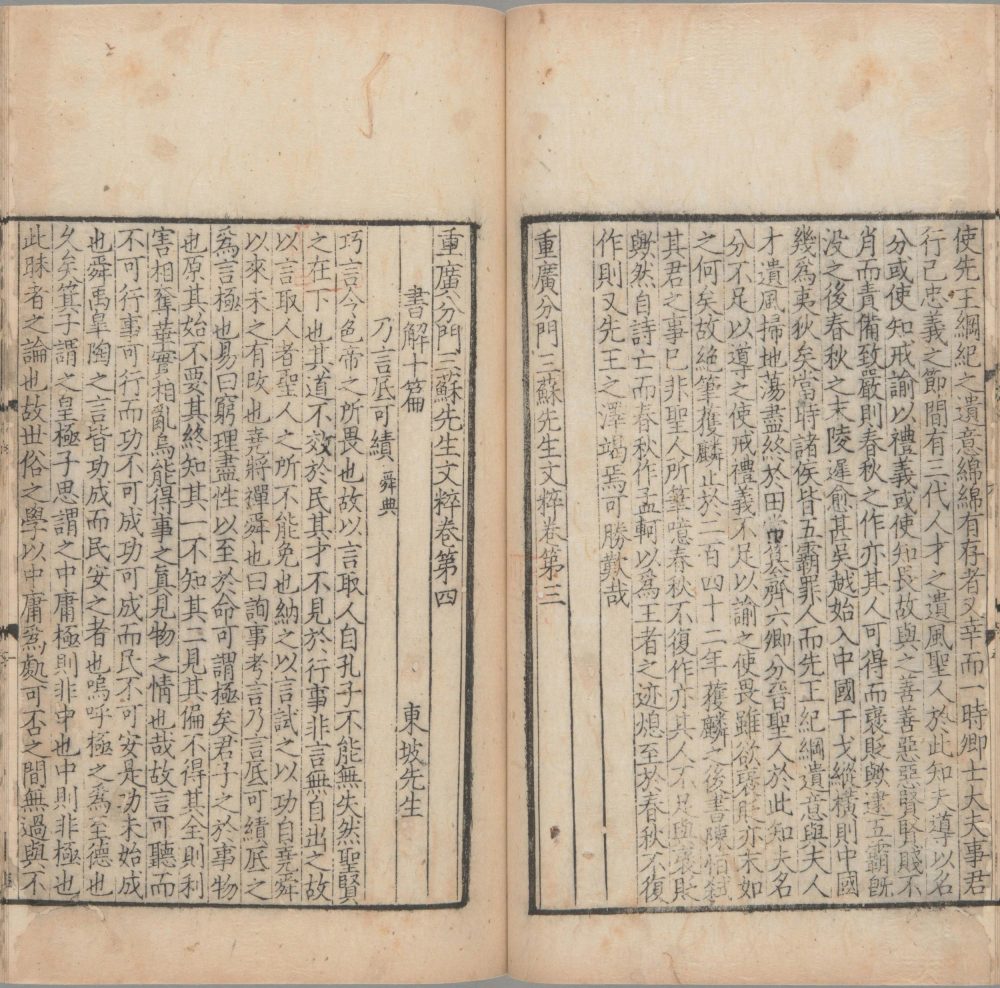 使先王綱紀之遺意綿綿有存者又幸而一時卿士大夫事君
行己忠義之節間有三代人才之遺風聖人於此知夫導以名
分或使知戒諭以禮義或使知長故與之善善惡惡賢賢賤不
肖而責備致嚴則春秋之作亦其人可得而襃貶歟逮五霸旣
没之後春秋之末陵遲愈甚吴越始入中國干戈縱橫則中國
幾爲夷狄矣當時諸侯皆五霸罪人而先王紀綱遺意與夫人
才遺風掃地蕩盡終於田常簒齊六卿分晉聖人於此知夫名
分不足以導之使戒禮義不足以諭之使畏雖欲襃貶亦末如
之何矣故絶筆獲麟止於二百四十二年獲麟之後書陳恒弑
其君之事已非聖人所筆噫春秋不復作亦其人不足與襃貶
歟然自詩亡而春秋作孟軻以爲王者之迹熄至於春秋不復
作則又先王之澤竭焉可勝歎哉
重廣分門三蘇先生文粹卷第三
重廣分門三蘇先生文粹卷第四
書解十篇 東坡先生
乃言底可績 舜典
巧言令色帝之所畏也故以言取人自孔子不能無失然聖賢
之在下也其道不效於民其才不見於行事非言無自出之故
以言取人者聖人之所不能免也納之以言試之以功自堯舜
以來未之有改也堯將禪舜也曰詢事考言乃言底可績底之
爲言極也易曰窮理盡性以至於命可謂極矣君子之於事物
也原其始不要其終知其一不知其二見其偏不得其全則利
害相奪華實相亂烏能得事之眞見物之情也哉故言可聽而
不可行事可行而功不可成功可成而民不可安是功未始成
也舜禹皐陶之言皆功成而民安之者也嗚呼極之爲至德也
久矣箕子謂之皇極子思謂之中庸極則非中也中則非極也
此昧者之論也故世俗之學以中庸爲處可否之間無過與不